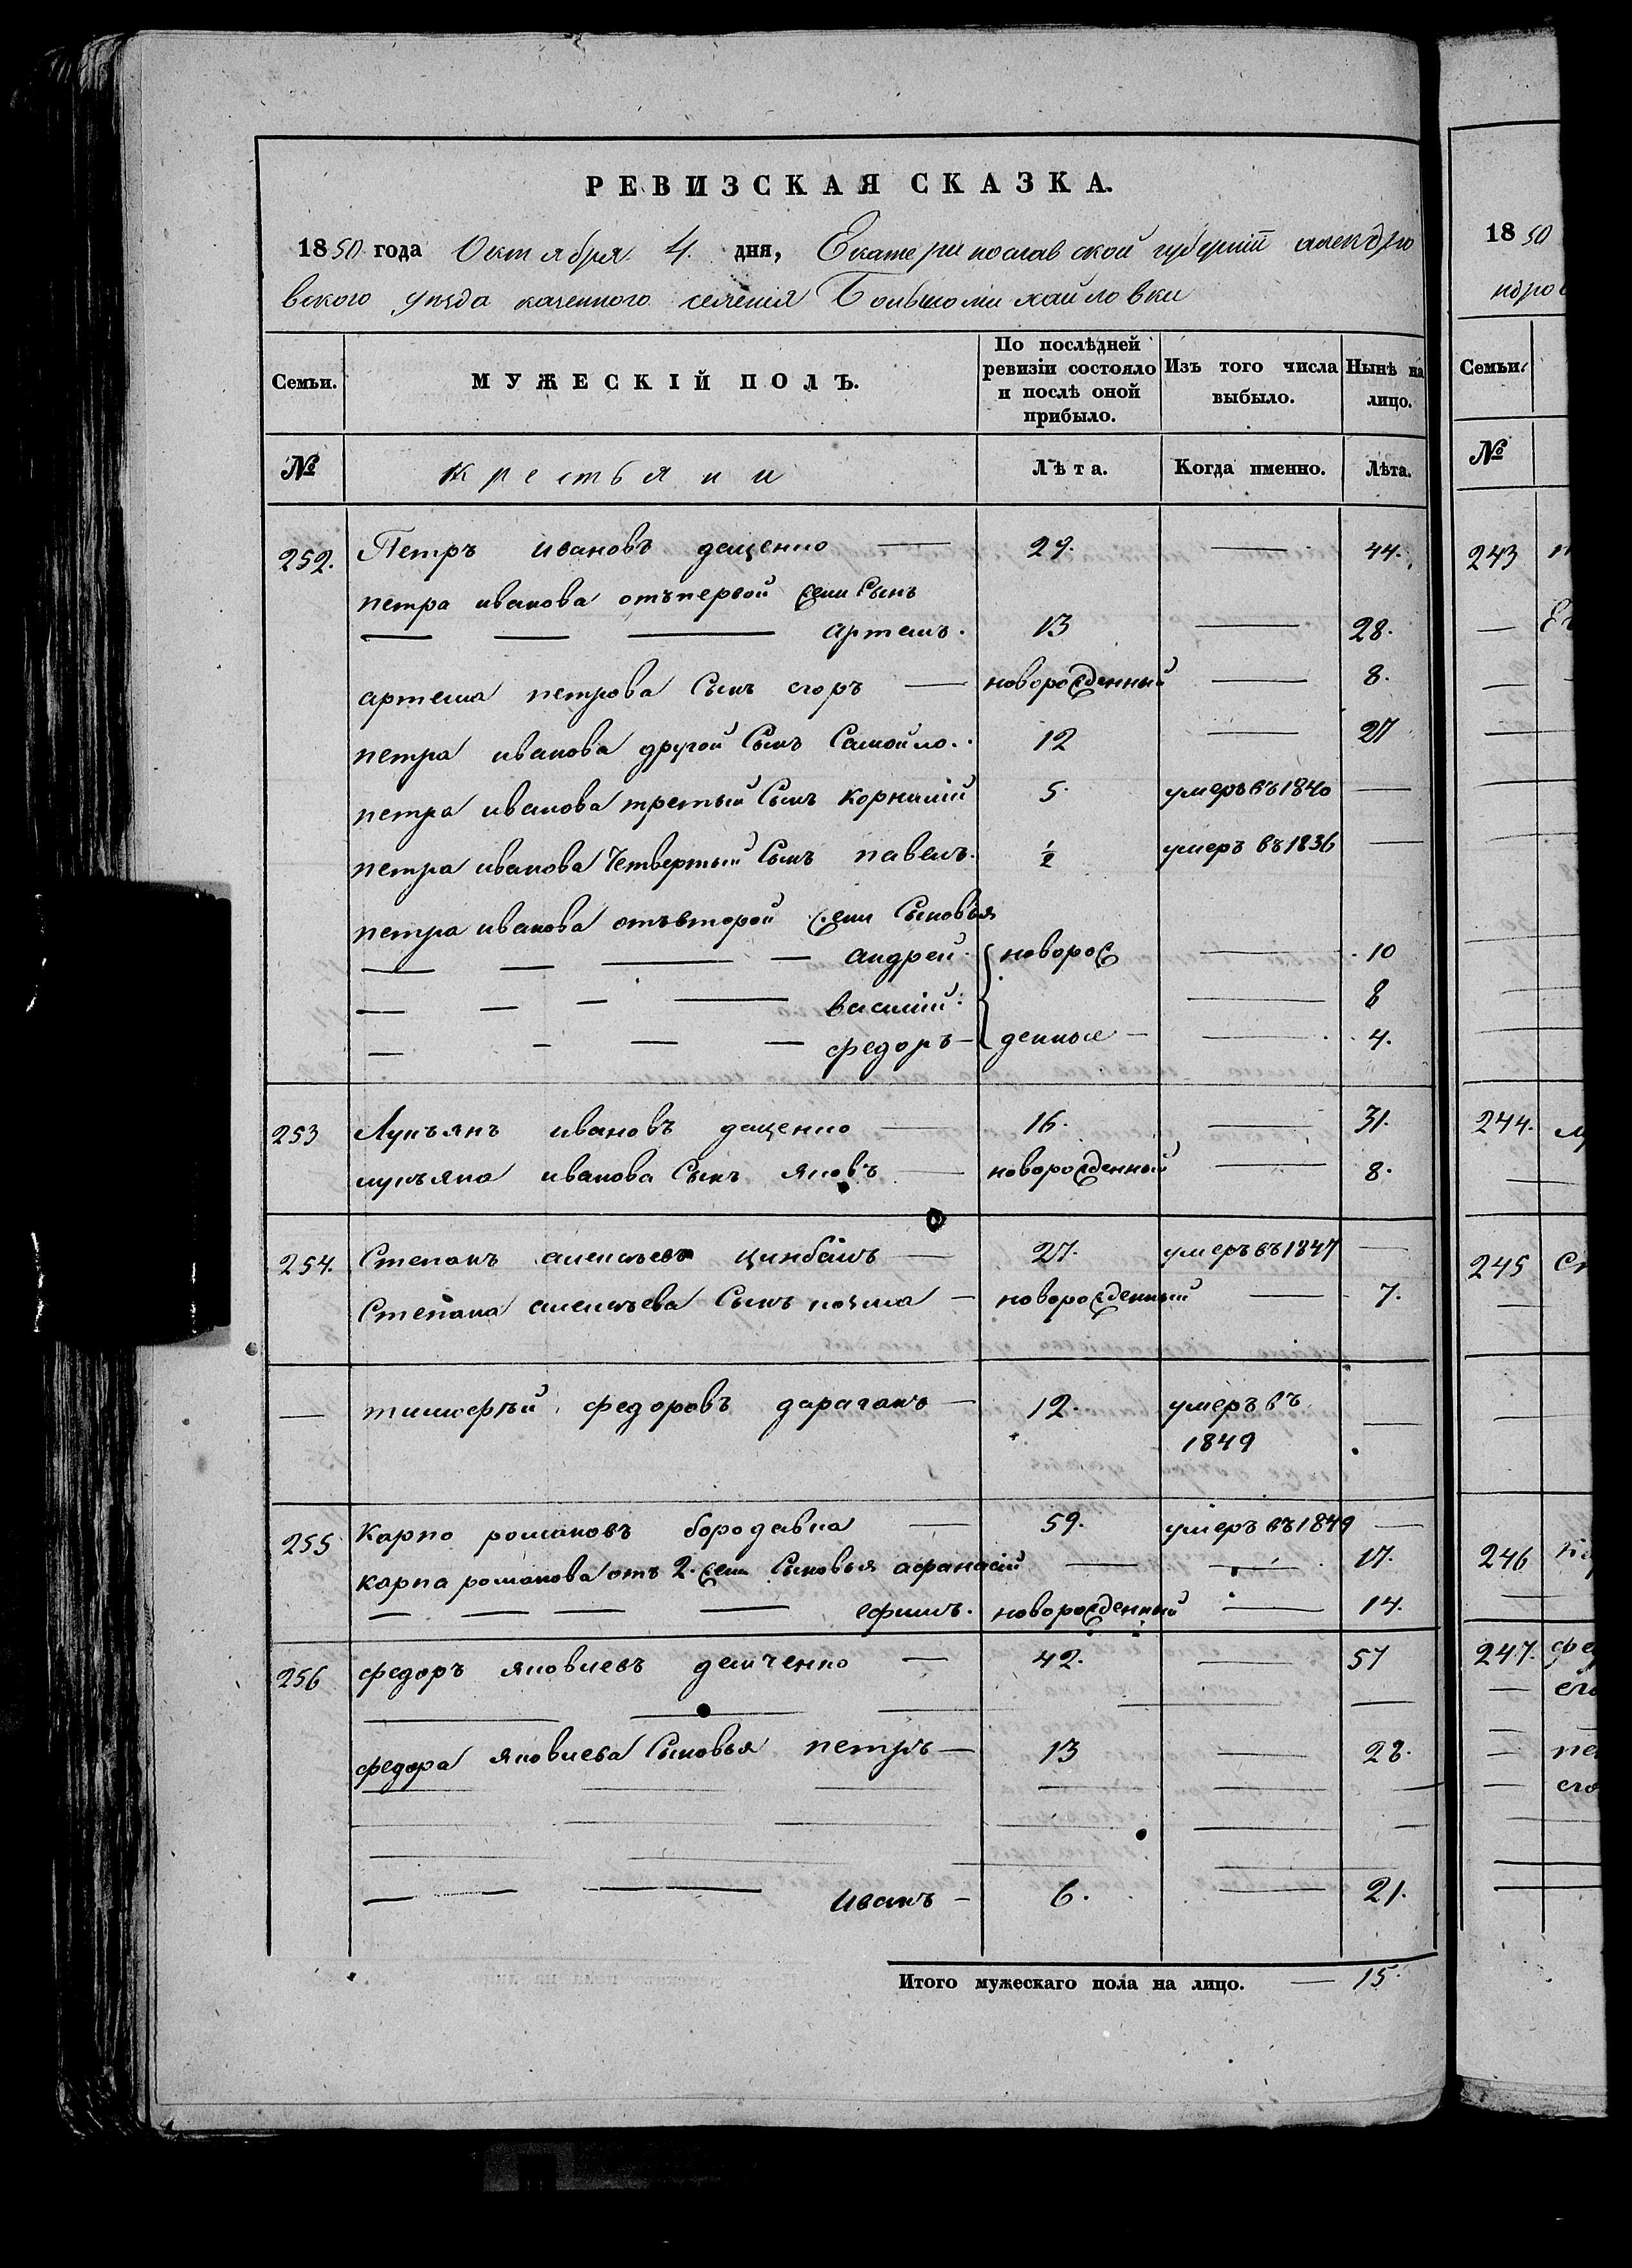 РЕВИЗСКАЯ СКАЗКА.
1850 года Октября 4. дня, Екатеринославской губерніи алексдро
вского уезда казенного селенія Большомихайловки
Семьи. МУЖЕСКІЙ ПОЛЪ. По послѣдней ревизіи состояло и послѣ оной прибыло. Изъ того числа выбыло. Нынѣ на лицо.
№ Крестьяни Лѣта. Когда именно. Лѣта.
252. Петръ ивановъ даценко — 29. — 44.
петра иванова отъ первой жены Сынъ
— — — артемъ. 13 — 28.
артема петрова Сынъ егоръ — новорожденный — 8.
петра иванова другой Сынъ Самойло. 12 — 27
петра иванова третьий Сынъ корнилій 5. умеръ въ 1840 —
петра иванова Четвертый Сынъ павелъ. ½ умеръ въ 1836 —
петра иванова отъ второй жены Сыновья
— — — — андрей. новорож — 10
— — — — василій: — 8
— — — — федоръ — денные — — 4.
253 Лукъянъ ивановъ даценко — 16. — 31.
лукъяна иванова Сынъ яковъ — новорожденный — 8.
254. Степанъ алексѣевъ цимбалъ — 27. умеръ въ 1847 —
Степана алексѣева Сынъ козма — новорожденный — 7.
— тимофѣй федоровъ дараганъ — 12. умеръ въ —
1849
255 Карпо романовъ бородавка — 59. умеръ въ 1849 —
карпа романова отъ 2. жены Сыновья афанасій — — 17.
— — — — ефимъ. новорожденный — 14.
256 федоръ яковлевъ демченко — 42. — 57
федора яковлева Сыновья петръ — 13 — 28.
— — — иванъ — 6. — 21.
Итого мужескаго пола на лицо. — 15.
1850
Семьи.
№
243
244.
245
246
247.